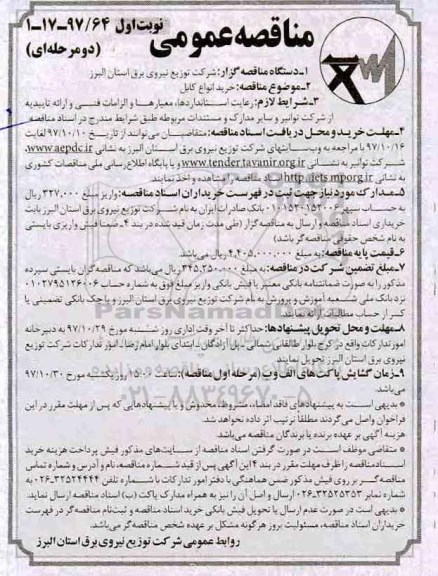 مناقصه عمومی
نوبت اول ۹۷/۶۴-۱۷-۱
(دو مرحله‌ای)
۱-دستگاه مناقصه گزار: شرکت توزیع نیروی برق استان البرز
۲-موضوع مناقصه: خرید انواع کابل
۳-شرایط لازم: رعایت استانداردها، معیارها و الزامات فنی و ارائه تاییدیه
از شرکت توانیر و سایر مدارک و مستندات مربوطه طبق شرایط مندرج در اسناد مناقصه
۴-مهلت خرید و محل دریافت اسناد مناقصه: متقاضیان می توانند از تاریخ ۹۷/۱۰/۱۰ لغایت
۹۷/۱۰/۱۶ با مراجعه به وب سایتهای شرکت توزیع نیروی برق استان البرز به نشانی www.aepdc.ir،
شرکت توانیر به نشانی www.tender.tavanir.org.ir و یا پایگاه اطلاع رسانی ملی مناقصات کشوری
به نشانی http://iets.mporg.ir اسناد مناقصه را مشاهده و اخذ نمایند.
۵-مدارک مورد نیاز جهت ثبت در فهرست خریداران اسناد مناقصه: واریز مبلغ ۳۲۷،۰۰۰ ریال
به حساب سپهر ۰۱۰۱۵۳۰۱۵۲۰۰۶ بانک صادرات ایران به نام شرکت توزیع نیروی برق استان البرز بابت
خریداری اسناد مناقصه و ارسال به مناقصه گزار (طی مدت زمان قید شده در بند ۴- ضمنا فیش واریزی بایستی
به نام شخص حقوقی مناقصه گر باشد)
۶-قیمت پایه مناقصه: به مبلغ ۴،۴۰۵،۰۰۰،۰۰۰ ریال می باشد.
۷-مبلغ تضمین شرکت در مناقصه: به مبلغ ۳۴۵،۲۵۰،۰۰۰ ریال می باشد که مناقصه گران بایستی سپرده
مذکور را به صورت ضمانتنامه بانکی معتبر یا فیش بانکی واریز مبلغ فوق به شماره حساب ۰۱۰۲۷۹۵۱۲۶۰۰۶
نزد بانک ملی شعبه آموزش و پرورش به نام شرکت توزیع نیروی برق استان البرز و یا چک بانکی تضمینی یا
کسر از حساب مطالبات ارائه نمایند.
۸-مهلت و محل تحویل پیشنهادها: حداکثر تا آخر وقت اداری روز شنبه مورخ ۹۷/۱۰/۲۹ به دبیرخانه
امور تدارکات واقع در کرج بلوار طالقانی شمالی- پل آزادگان- ابتدای بلوار امام رضا- امور تدارکات شرکت توزیع
نیروی برق استان البرز تحویل نمایند.
۹-زمان گشایش پاکت های الف و ب (مرحله اول مناقصه): ساعت ۱۵:۰۰ روز یکشنبه مورخ ۹۷/۱۰/۳۰
می باشد.
* بدیهی است به پیشنهادهای فاقد امضاء، مشروط، مخدوش و یا پیشنهادهایی که پس از مهلت مقرر در این
فراخوان واصل می گردند مطلقا ترتیب اثر داده نخواهد شد.
هزینه آگهی بر عهده برنده یا برندگان مناقصه می باشد.
* متقاضی موظف است در صورت گرفتن اسناد مناقصه از سایت های مذکور فیش پرداخت هزینه خرید
اسناد مناقصه را ظرف مهلت مقرر در بند ۴ این آگهی پس از قید شماره مناقصه، نام و آدرس و شماره تماس
مناقصه گر بر روی فیش مذکور ضمن هماهنگی با دفتر امور تدارکات با شماره تلفن ۳۲۵۲۴۴۴۴-۰۲۶ به
شماره نمابر ۳۲۵۲۵۳۵۳-۰۲۶ ارسال و اصل آن را نیز به همراه مدارک پاکت (ب) اسناد مناقصه ارسال نماید.
* بدیهی است در صورت عدم ارسال یا تحویل فیش بانکی خرید اسناد مناقصه و ثبت نام مناقصه گر در فهرست
خریداران اسناد مناقصه، مسئولیت بروز هرگونه مشکل بر عهده شخص مناقصه گر می باشد.
روابط عمومی شرکت توزیع نیروی برق استان البرز